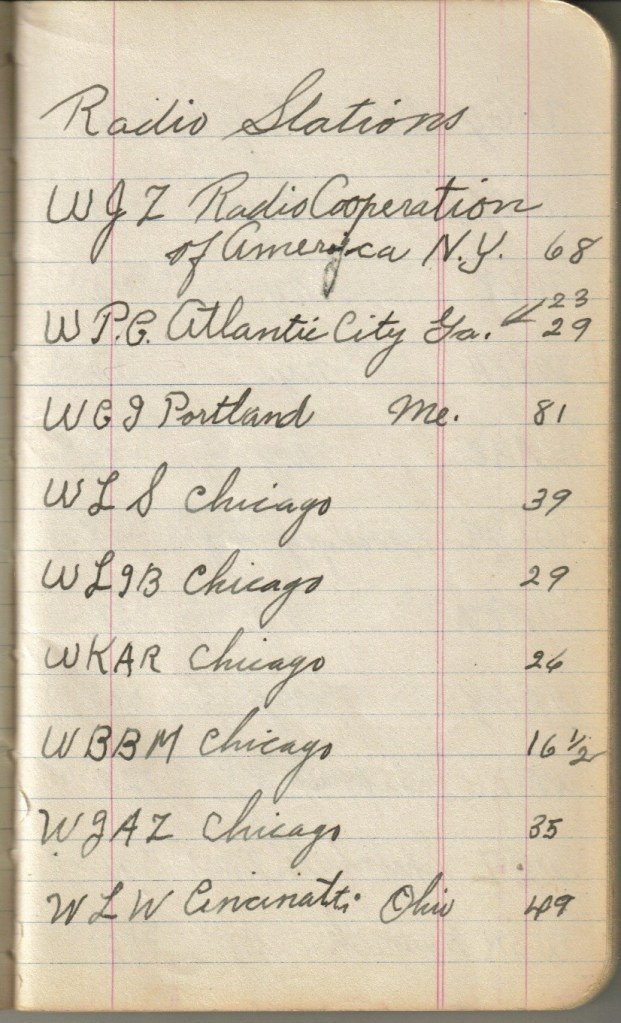 Radio Stations
WJZ Radio Cooperation
of America N.Y. 68
23
W P.G. Atlantic City Ga. 29
WGJ Portland Me. 81
WLS Chicago 39
WLIB Chicago 29
WKAR Chicago 26
WBBM Chicago 16 1/2
WJAZ Chicago 35
WLW Cincinatti Ohio 49